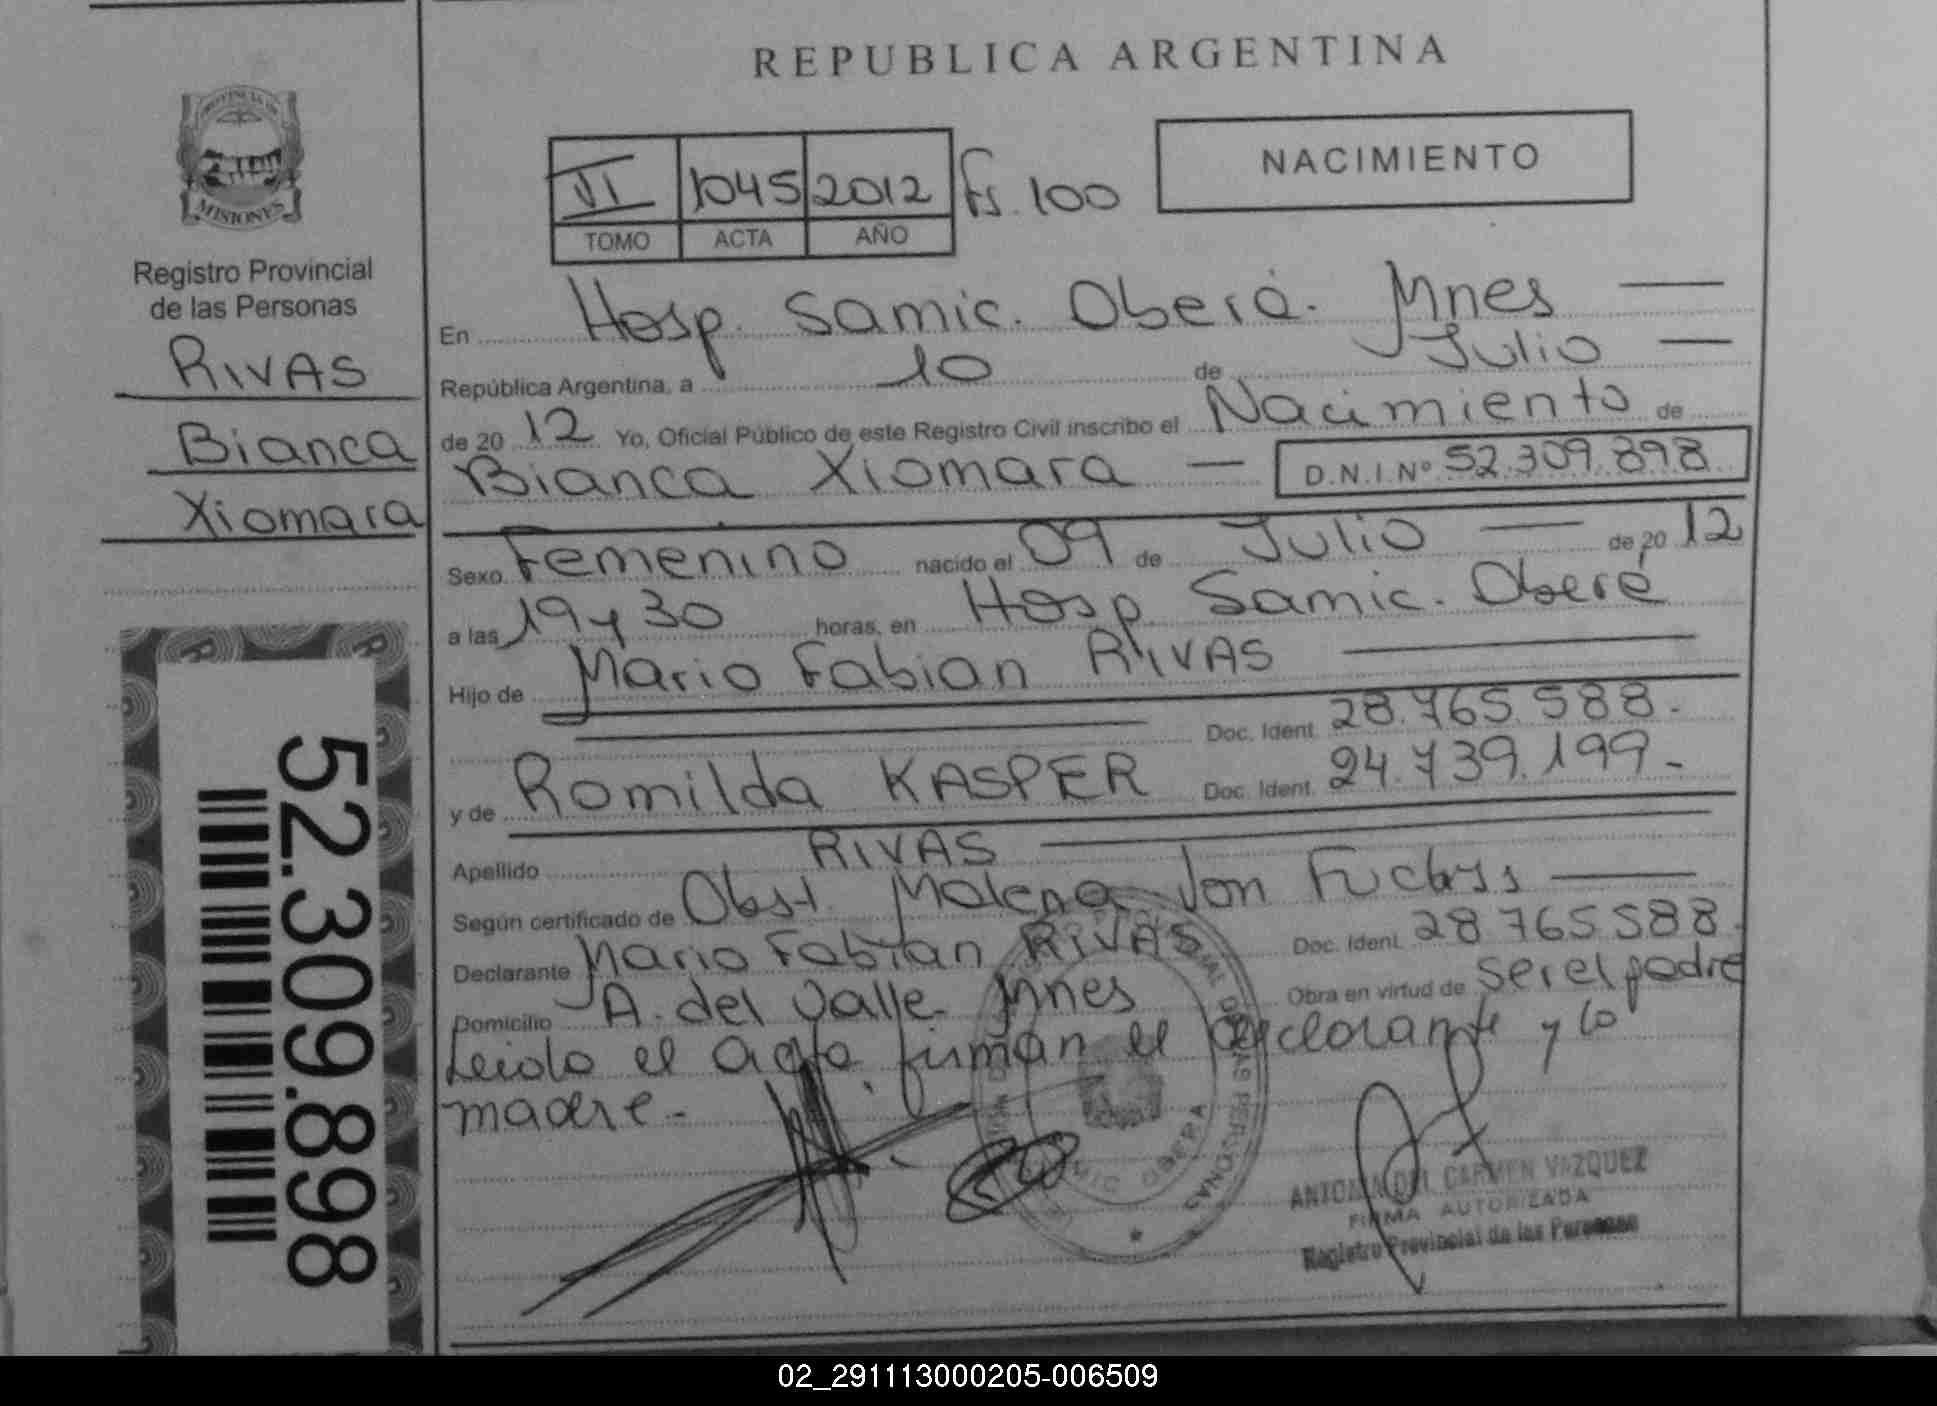 REPUBLICA ARGENTINA
PROVINCIA DE
MISIONES
Registro Provincial
de las Personas
RIVAS
Bianca
Xiomara
52.309.898
VI 1045 2012 Fs. 100
TOMO ACTA AÑO
NACIMIENTO
En Hosp. Samic. Oberá. Mnes
República Argentina, a 10 de Julio
de 20 12 Yo, Oficial Público de este Registro Civil inscribo el Nacimiento de
Bianca Xiomara D.N.I Nº 52.309.898
Sexo Femenino nacido el 09 de Julio de 20 12
a las 19 y 30 horas, en Hosp. Samic. Oberá
Hijo de Mario Fabian RIVAS
Doc. Ident. 28.765.588.-
y de Romilda KASPER Doc. Ident. 24.739.199.-
Apellido RIVAS
Según certificado de Obst. Malena Von
Declarante Mario Fabian RIVAS Doc. Ident. 28 765 588.
Domicilio A. del Valle Mnes Obra en virtud de ser el padre
Leido el acta firman el declarante y la
madre.-
SAMIC OBERA
DE LAS PERSONAS
DEL CARMEN VAZQUEZ
FIRMA AUTORIZADA
Registro Provincial de las Personas
02_291113000205-006509